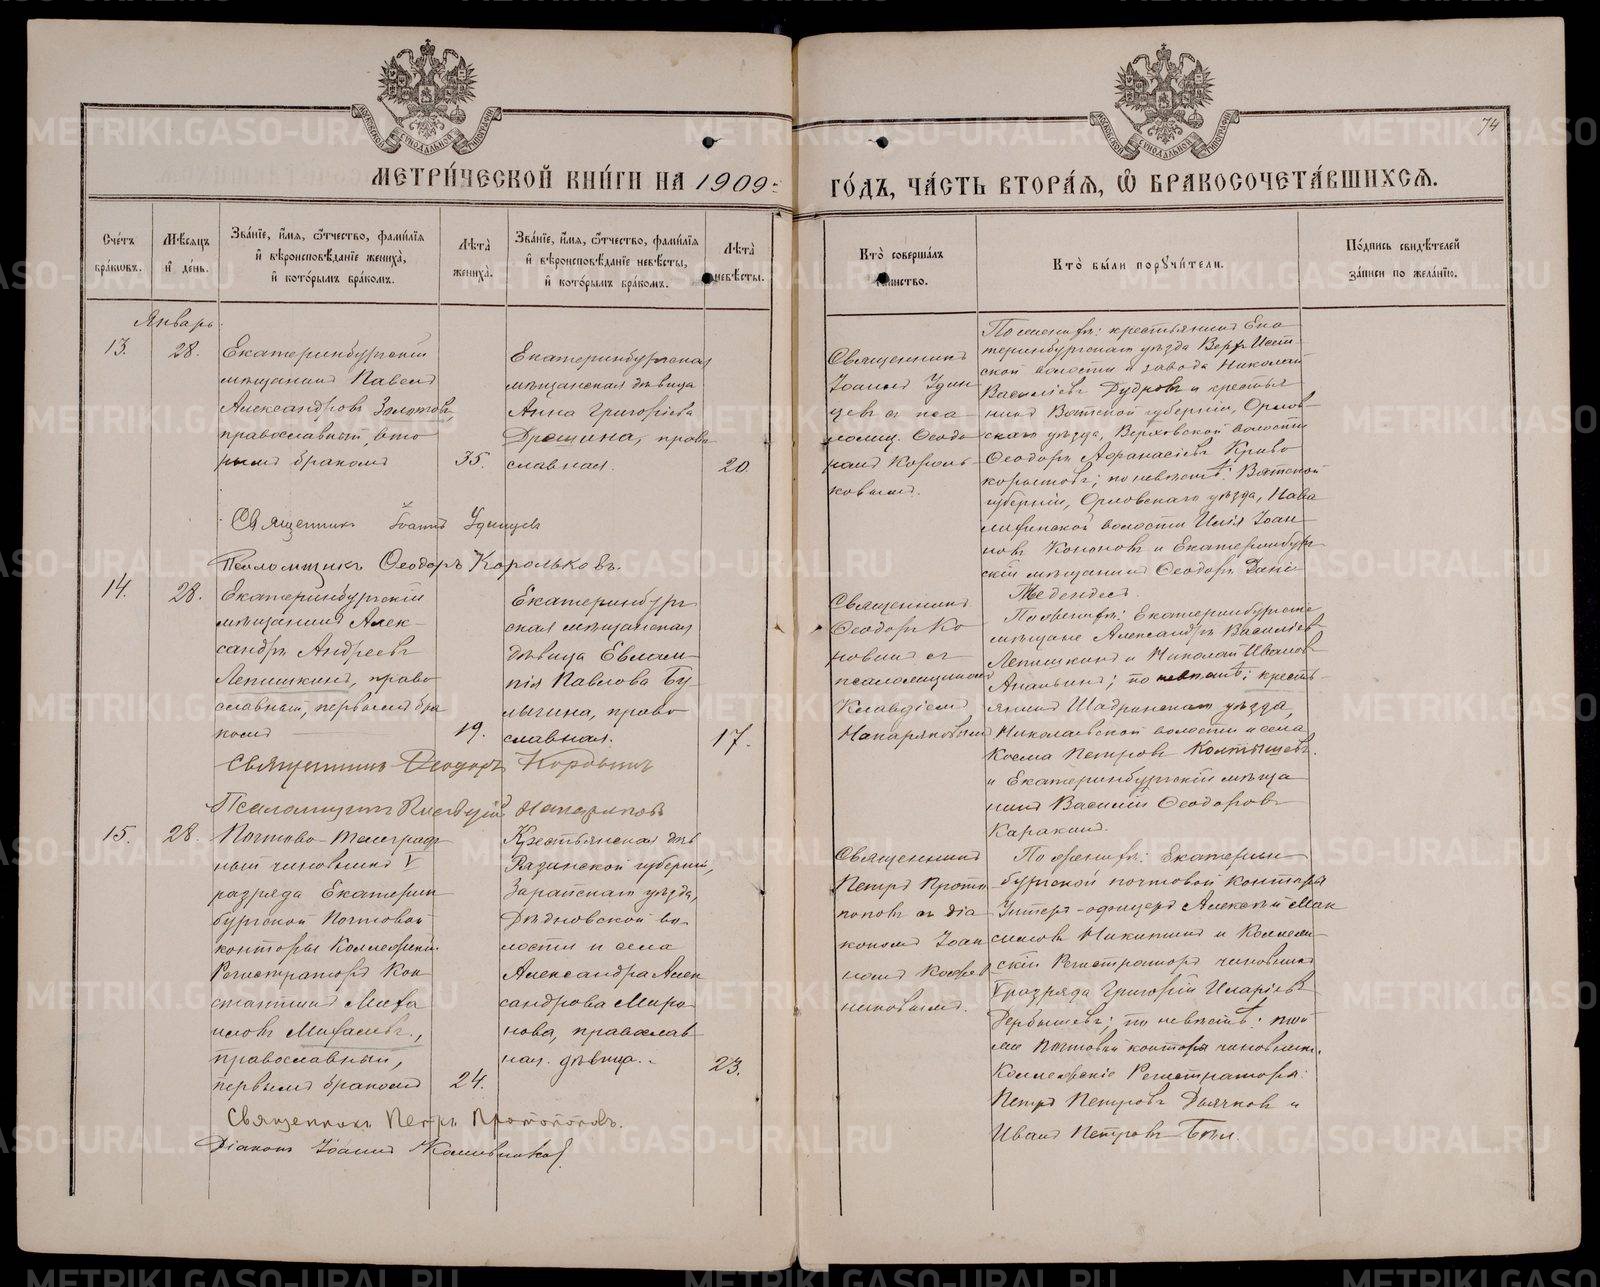 74
МЕТРИ́ЧЕСКОЙ КНИ́ГИ НА 1909
ГО́ДЪ, ЧА́СТЬ ВТОРА́Я, Ѿ БРАКОСОЧЕТА́ВШИХСЯ.
Сче́тъ бра́ковъ.
Мѣ́сяцъ и́ де́нь.
Зва́нїе, и́мя, ѻ́тчество, фами́лїя
и҆ вѣроисповѣ́данїе жениха̀,
и҆ кото́рымъ бра́комъ.
Лѣта̀ жениха̀.
Зва́нїе, и́мя, ѻ́тчество, фами́лїя
и҆ вѣроисповѣ́данїе невѣ́сты,
и҆ кото́рымъ бра́комъ.
Лѣта̀ невѣ́сты.
Кто̀ соверша́лъ таинство.
Кто̀ бы́ли поручи́тели.
По́дпись свидѣ́телей
за́писи по жела́нїю.
Январь.
13.
28.
Екатеринбургскій
мѣщанинъ Павелъ
Александровъ Золотовъ,
православный, вто
рымъ бракомъ
35.
Екатеринбургская
мѣщанская дѣвица
Анна Григоріева
право
славная.
20.
Священникъ
Іоаннъ Удин
цевъ съ пса
ломщ. Ѳеодо
ромъ Король
ковымъ.
По женихѣ: крестьянинъ Ека
теринбургскаго уѣзда Верхъ Исет
ской волости и завода Николай
Василіевъ Дудровъ и кресть
нинъ Вятской губерніи, Орлов
скаго уѣзда, Верховской волости
Ѳеодоръ Аѳанасіевъ Криво
корытовъ; по невѣстѣ: Вятской
губерніи, Орловскаго уѣзда,
волости Илія Іоан
новъ Кононовъ и Екатеринбург
скій мѣщанинъ Ѳеодоръ
Священникъ Іоаннъ Удинцевъ
Псаломщикъ Ѳеодоръ Корольковъ.
14.
28.
Екатеринбургскій
мѣщанинъ Алек
сандръ Андреевъ
Лепишкинъ, право
славный, первымъ бра
комъ
19.
Екатеринбург
ская мѣщанская
дѣвица Евлам
пія Павлова Бу
лыгина, право
славная.
17.
Священникъ
Ѳеодоръ Ко
ровинъ съ
псаломщикомъ
Клавдіемъ
Напаряковымъ
По женихѣ: Екатеринбургскіе
мѣщане Александръ Василіевъ
Лепишкинъ и Николай Ивановъ
Ананьинъ; по невѣстѣ: кресть
янинъ Шадринскаго уѣзда,
Николаевской волости и села
Косма Петровъ Колтышевъ
и Екатеринбургскій мѣща
нинъ Василій Ѳеодоровъ
Каракинъ.
Священникъ Ѳеодоръ Коровинъ
Псаломщикъ Клавдій Напаряковъ
15.
28.
Почтово-телеграф
ный чиновникъ V
разряда Екатерин
бургской Почтовой
конторы Коллежскій
Регистраторъ Кон
стантинъ Миха
иловъ Михалевъ,
православный,
первымъ бракомъ
24.
Крестьянская дѣв.
Рязанской губерніи,
Зарайскаго уѣзда,
Дѣдновской во
лости и села
Александра Алек
сандрова Миро
нова, православ
ная. дѣвица.
23.
Священникъ
Петръ Прото
поповъ съ діа
кономъ Іоан
номъ
По женихѣ: Екатерин
бургской почтовой конторы
Унтеръ-офицеръ Алексѣй Мак
симовъ Никитинъ и Коллеж
скій Регистраторъ чиновникъ
V разряда Григорій Иларіевъ
Дербышевъ; по невѣстѣ: той
же Почтовой конторы чиновник.
Коллежскіе Регистраторы:
Петръ Петровъ Дьячковъ и
Иванъ Петровъ
Священникъ Петръ Протопоповъ.
Діаконъ Іоаннъ